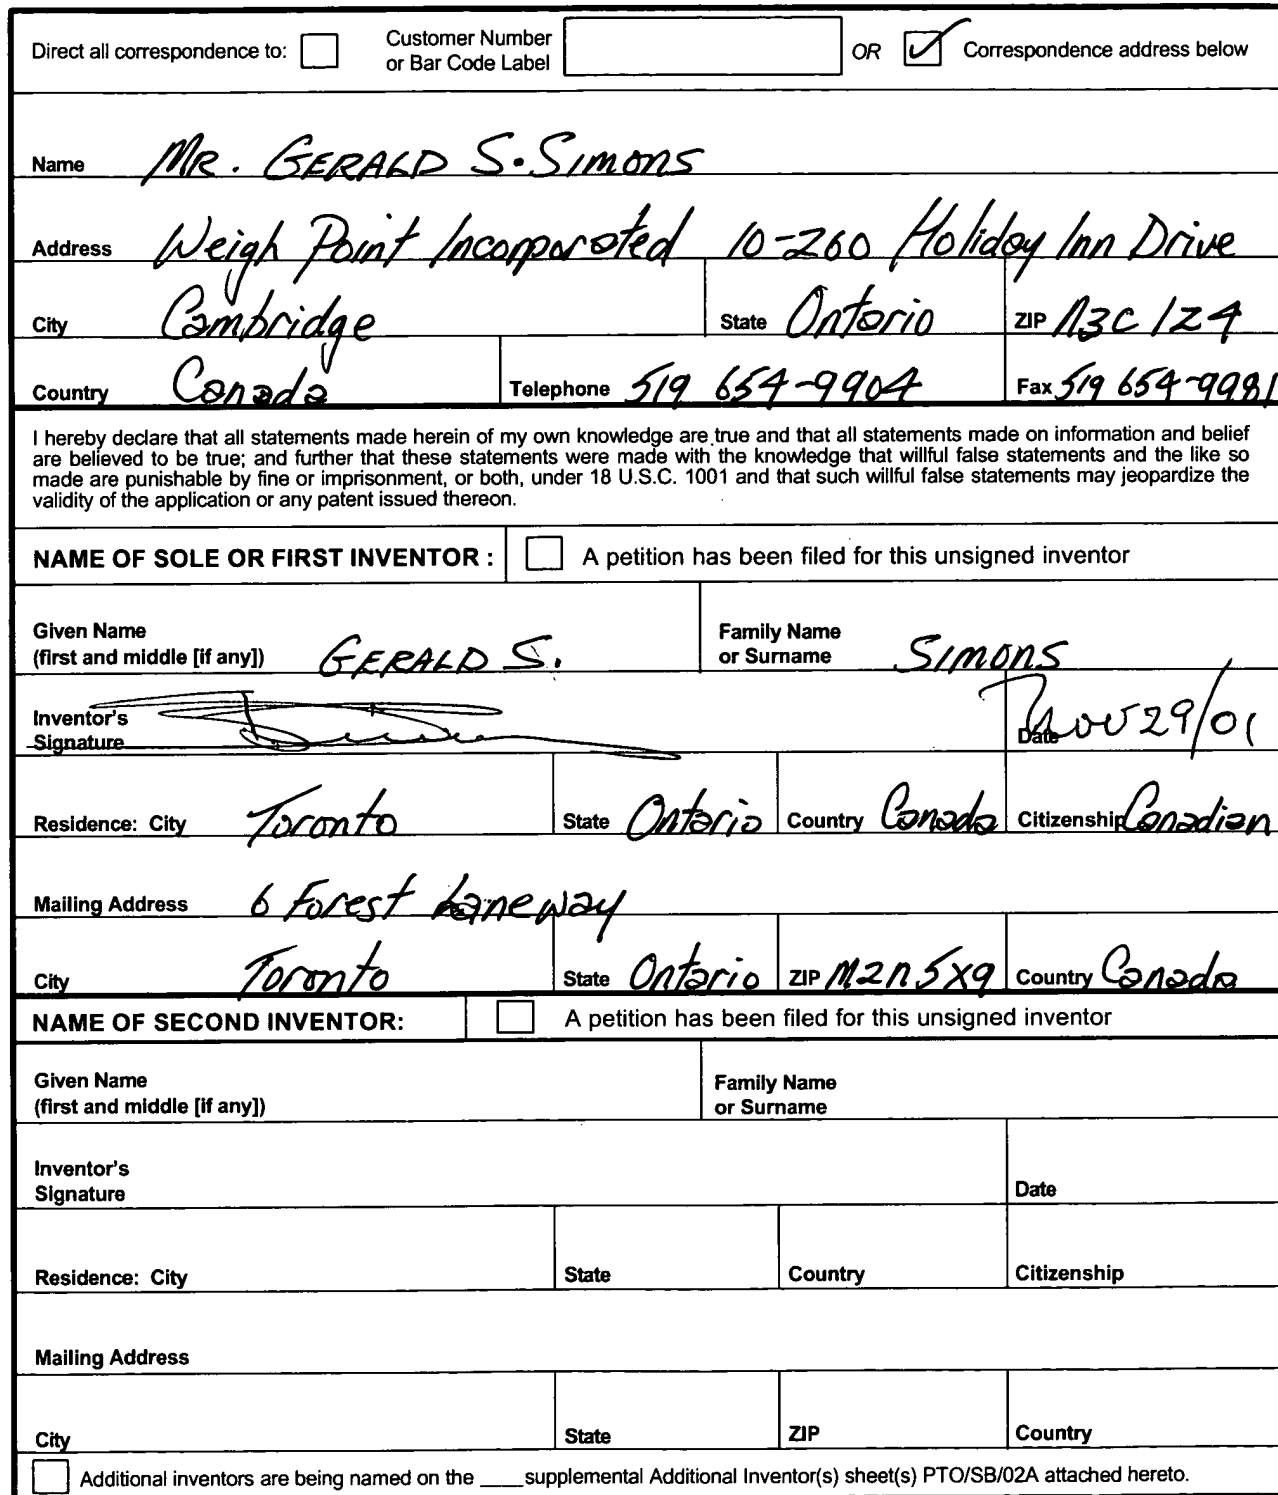 Direct all correspondence to: Customer Number or Bar Code Label OR Correspondence address below
Name MR. GERALD S. SIMONS
Address Weigh Point Incorporated 10-260 Holiday Inn Drive
City Cambridge State Ontario ZIP N3C 1Z4
Country Canada Telephone 519 654-9904 Fax 519 654-9981
I hereby declare that all statements made herein of my own knowledge are true and that all statements made on information and belief
are believed to be true; and further that these statements were made with the knowledge that willful false statements and the like so
made are punishable by fine or imprisonment, or both, under 18 U.S.C. 1001 and that such willful false statements may jeopardize the
validity of the application or any patent issued thereon.
NAME OF SOLE OR FIRST INVENTOR : A petition has been filed for this unsigned inventor
Given Name
(first and middle [if any]) GERALD S.
Family Name
or Surname SIMONS
Inventor's
Signature
Date Nov 29/01
Residence: City Toronto State Ontario Country Canada Citizenship Canadian
Mailing Address 6 Forest Laneway
City Toronto State Ontario ZIP M2N 5X9 Country Canada
NAME OF SECOND INVENTOR: A petition has been filed for this unsigned inventor
Given Name
(first and middle [if any])
Family Name
or Surname
Inventor's
Signature
Date
Residence: City State Country Citizenship
Mailing Address
City State ZIP Country
Additional inventors are being named on the ____supplemental Additional Inventor(s) sheet(s) PTO/SB/02A attached hereto.